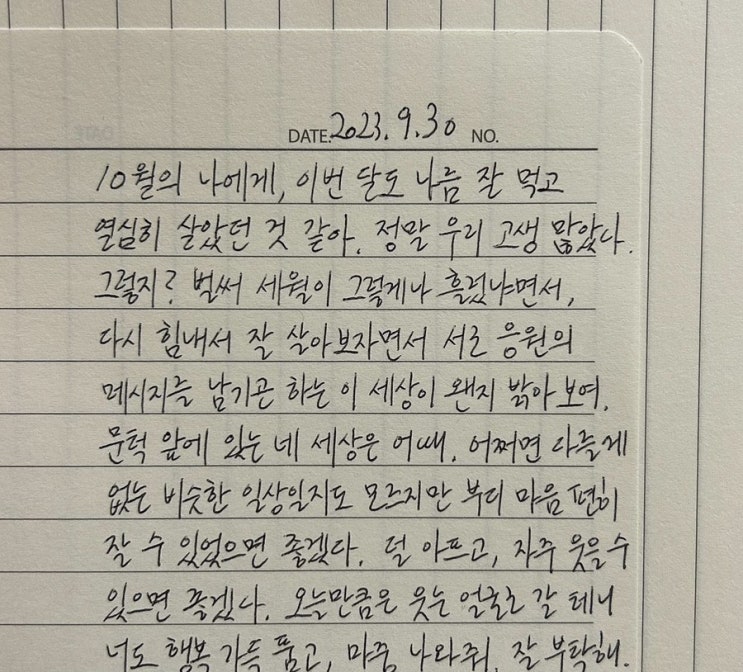 DATE. 2023. 9. 30 NO.
10월의 나에게, 이번 달도 나름 잘 먹고
열심히 살았던 것 같아. 정말 우리 고생 많았다.
그렇지? 벌써 세월이 그렇게나 흘렀냐면서,
다시 힘내서 잘 살아보자면서 서로 응원의
메시지를 남기곤 하는 이 세상이 왠지 밝아 보여.
문턱 앞에 있는 네 세상은 어때. 어쩌면 다를게
없는 비슷한 일상일지도 모르지만 부디 마음 편히
잘 수 있었으면 좋겠다. 덜 아프고, 자주 웃을 수
있으면 좋겠다. 오늘만큼은 웃는 얼굴로 갈 테니
너도 행복 가득 품고, 마중 나와줘. 잘 부탁해.